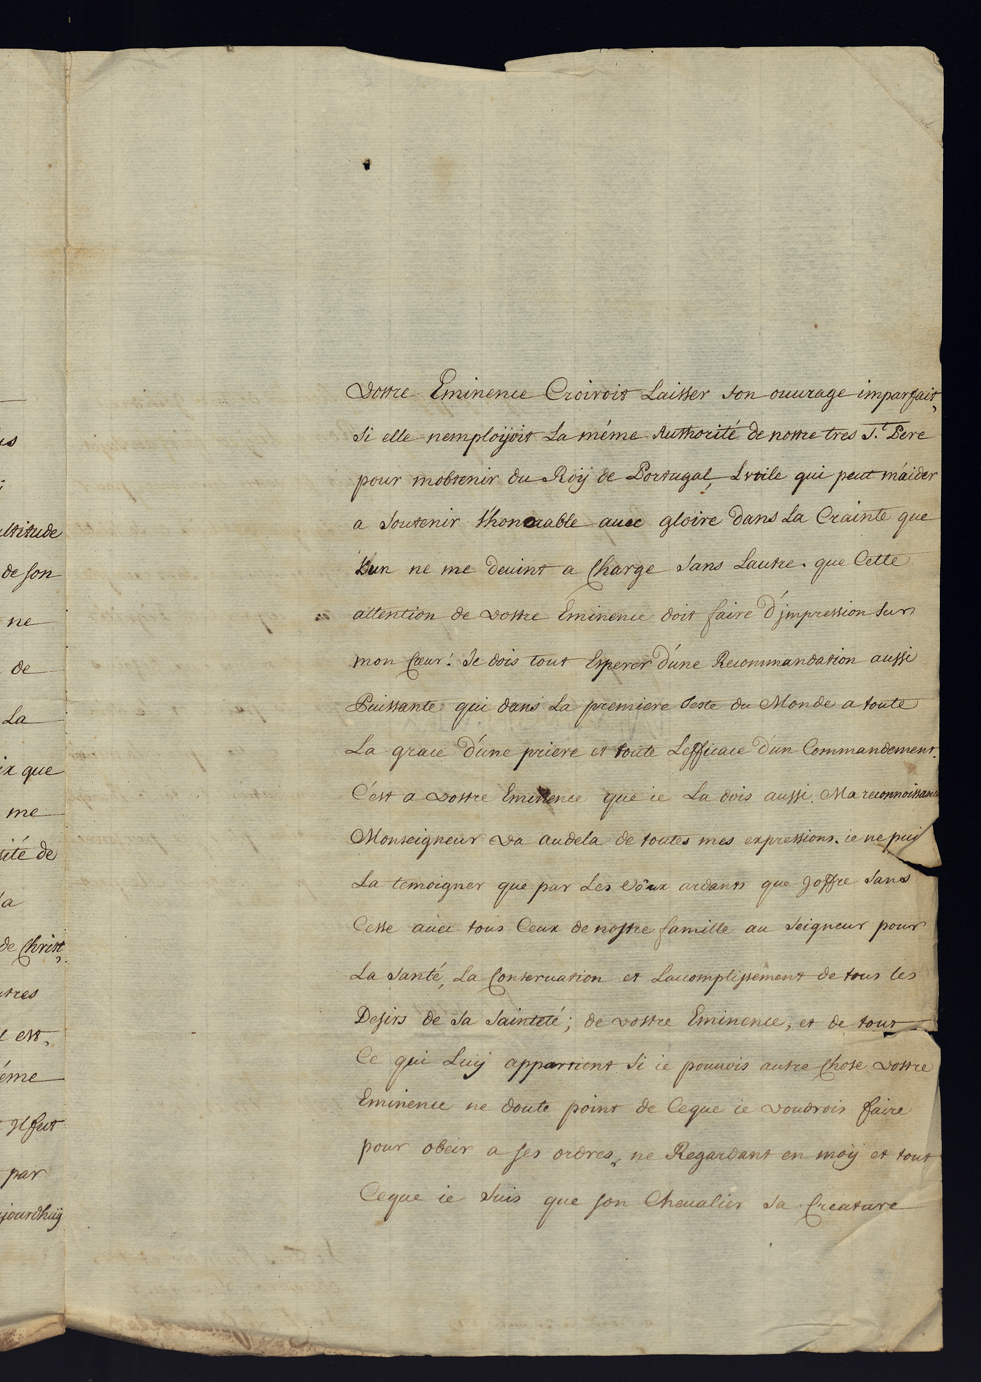 us
ultitude
de son
ne
de
La
ix que
me
sité de
a
de Christ,
utres
est,
éme
Il fut
par
jourdhuÿ
Vostre Eminence Croiroit Laisser son ouurage imparfait,
Si elle nemploÿoit La méme Authorité de nostre tres S.t Pere
pour mobtenir du Roÿ de Portugal, Lvtile qui peut m'aider
a Soutenir Lhonorable auec gloire dans La Crainte que
Lun ne me deuint a Charge Sans Lautre. que Cette
attention de Vostre Eminence doit faire D'jmpression Sur
mon Cœur! Je dois tout Esperer d'une Recommandation aussi
Puissante qui dans La premiere Teste du Monde a toute
La grace d'une priere et toute Lefficace d'un Commandement.
C'est a Vostre Eminence que ie La dois aussi. Ma reconnoissance
Monseigneur Va audela de toutes mes expressions. ie ne puis
La temoigner que par Les Vœux ardants que Joffre Sans
Cesse auec tous Ceux de nostre famille au Seigneur pour
La Santé, La Conseruation et Lacomplissement de tous les
Desirs de Sa Sainteté; de Vostre Eminence, et de tout
Ce qui Luÿ appartient. Si ie pouuois autre Chose Vostre
Eminence ne doute point de Ceque ie Voudrois faire
pour obeir a ses ordres, ne Regardant en moÿ et tout
Ceque ie Suis que son Cheualier Sa Creature